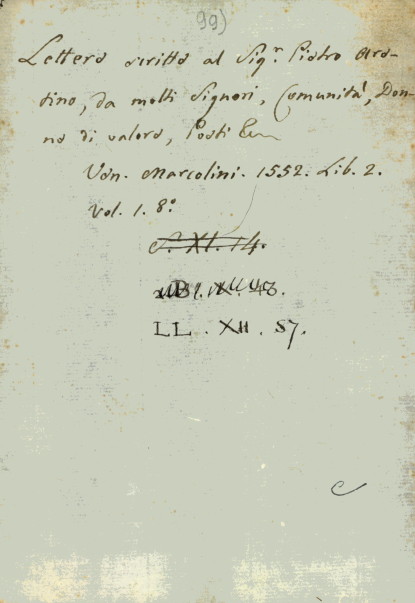 99)
Lettere scritte al Sig.r Pietro Are-
tino, da molti Signori, Comunità, Don-
ne di valore, Poeti &c
Ven. Marcolini. 1552. Lib. 2.
Vol. 1. 8.°
XI. 14.
48.
LL. XII. 57.